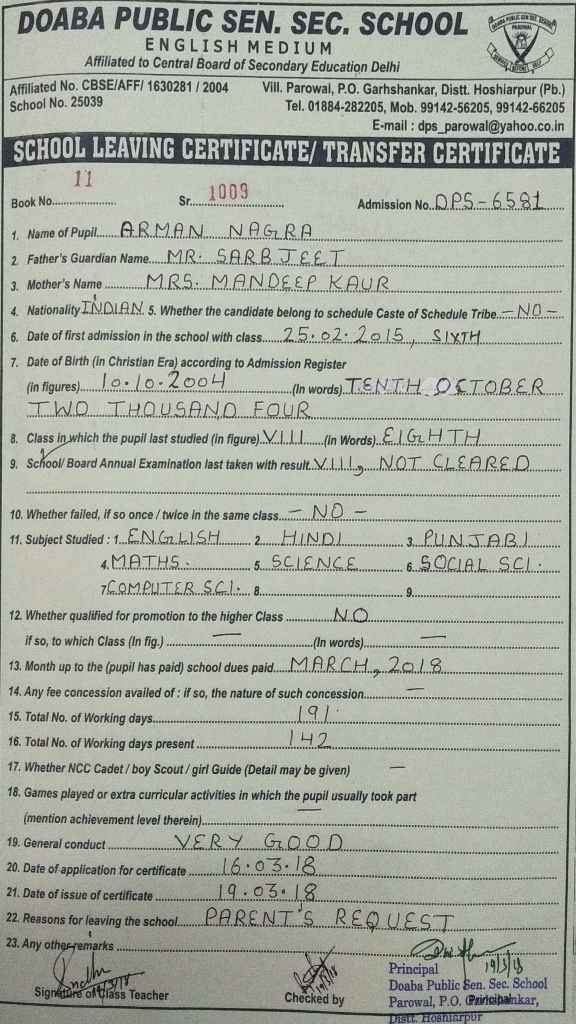 DOABA PUBLIC SEN. SEC. SCHOOL
ENGLISH MEDIUM
Affiliated to Central Board of Secondary Education Delhi
Affiliated No. CBSE/AFF/ 1630281 / 2004 Vill. Parowal, P.O. Garhshankar, Distt. Hoshiarpur (Pb.)
School No. 25039 Tel. 01884-282205, Mob. 99142-56205, 99142-66205
E-mail : dps_parowal@yahoo.co.in
SCHOOL LEAVING CERTIFICATE/ TRANSFER CERTIFICATE
Book No. 11 Sr. 1009 Admission No. DPS-6581
1. Name of Pupil ARMAN NAGRA
2. Father's Guardian Name MR. SARBJEET
3. Mother's Name MRS. MANDEEP KAUR
4. Nationality INDIAN 5. Whether the candidate belong to schedule Caste of Schedule Tribe -NO-
6. Date of first admission in the school with class 25.02.2015, SIXTH
7. Date of Birth (in Christian Era) according to Admission Register
(in figures) 10.10.2004 (In words) TENTH OCTOBER
TWO THOUSAND FOUR
8. Class in which the pupil last studied (in figure) VIII (in Words) EIGHTH
9. School/ Board Annual Examination last taken with result VIII, NOT CLEARED
10. Whether failed, if so once / twice in the same class - NO -
11. Subject Studied : 1. ENGLISH 2. HINDI 3. PUNJABI
4. MATHS. 5. SCIENCE 6. SOCIAL SCI.
7 COMPUTER SCI. 8. 9.
12. Whether qualified for promotion to the higher Class NO
if so, to which Class (In fig.) — (In words) —
13. Month up to the (pupil has paid) school dues paid MARCH, 2018
14. Any fee concession availed of : if so, the nature of such concession —
15. Total No. of Working days 191
16. Total No. of Working days present 142
17. Whether NCC Cadet / boy Scout / girl Guide (Detail may be given) —
18. Games played or extra curricular activities in which the pupil usually took part
(mention achievement level therein) —
19. General conduct VERY GOOD
20. Date of application for certificate 16.03.18
21. Date of issue of certificate 19.03.18
22. Reasons for leaving the school PARENT'S REQUEST
23. Any other remarks
19/3/18
Principal
Doaba Public Sen. Sec. School
Signature of Class Teacher Checked by Parowal, P.O. Garhshankar,
Principal
Distt. Hoshiarpur